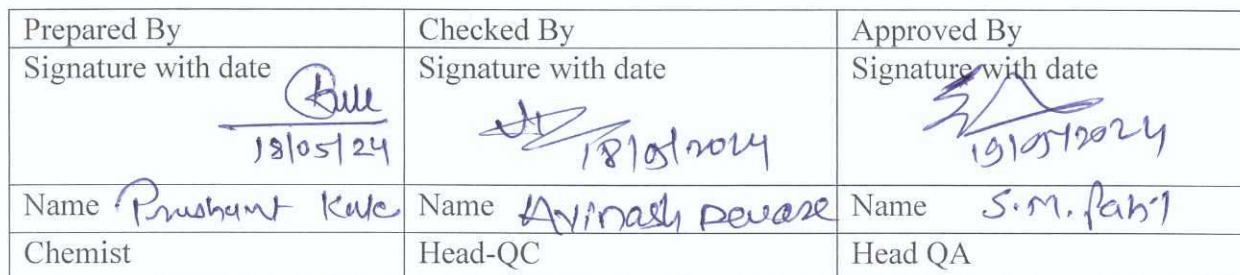 Prepared By Checked By Approved By
Signature with date Signature with date Signature with date
18/05/24 18/05/2024 19/05/2024
Name Prashant Kale Name Avinash Devare Name S.M. Patil
Chemist Head-QC Head QA